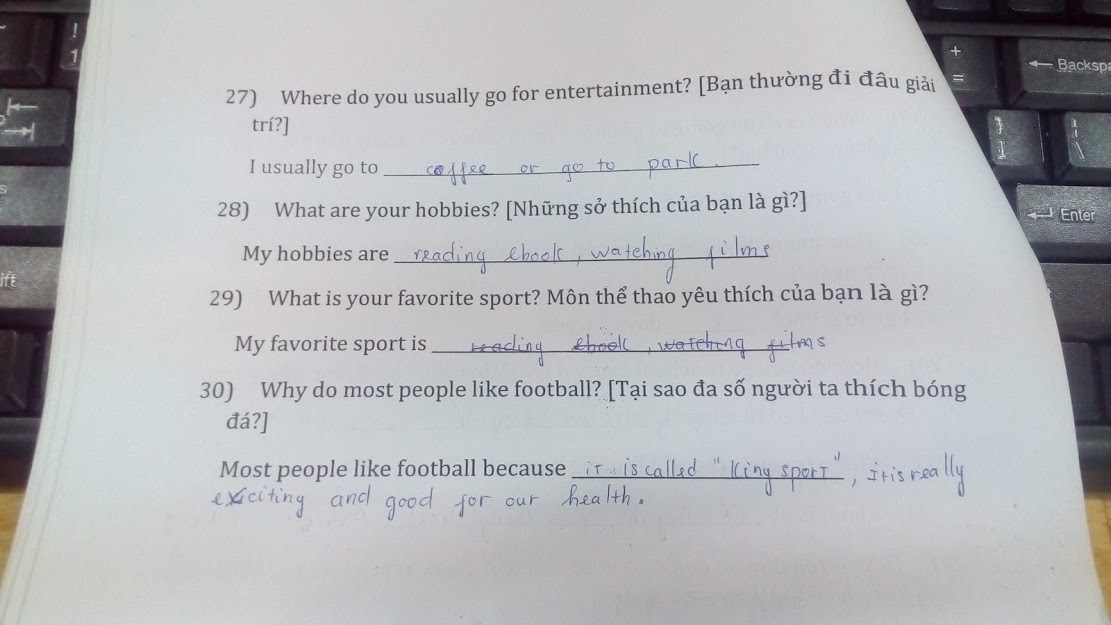 27) Where do you usually go for entertainment? [Bạn thường đi đâu giải
trí?]
I usually go to coffee or go to park.
28) What are your hobbies? [Những sở thích của bạn là gì?]
My hobbies are reading ebook, watching films
29) What is your favorite sport? Môn thể thao yêu thích của bạn là gì?
My favorite sport is reading ebook, watching films
30) Why do most people like football? [Tại sao đa số người ta thích bóng
đá?]
Most people like football because it is called "King sport", it is really
exciting and good for our health.
! 1
+ =
← Backspa
} ]
| \
Enter
ift